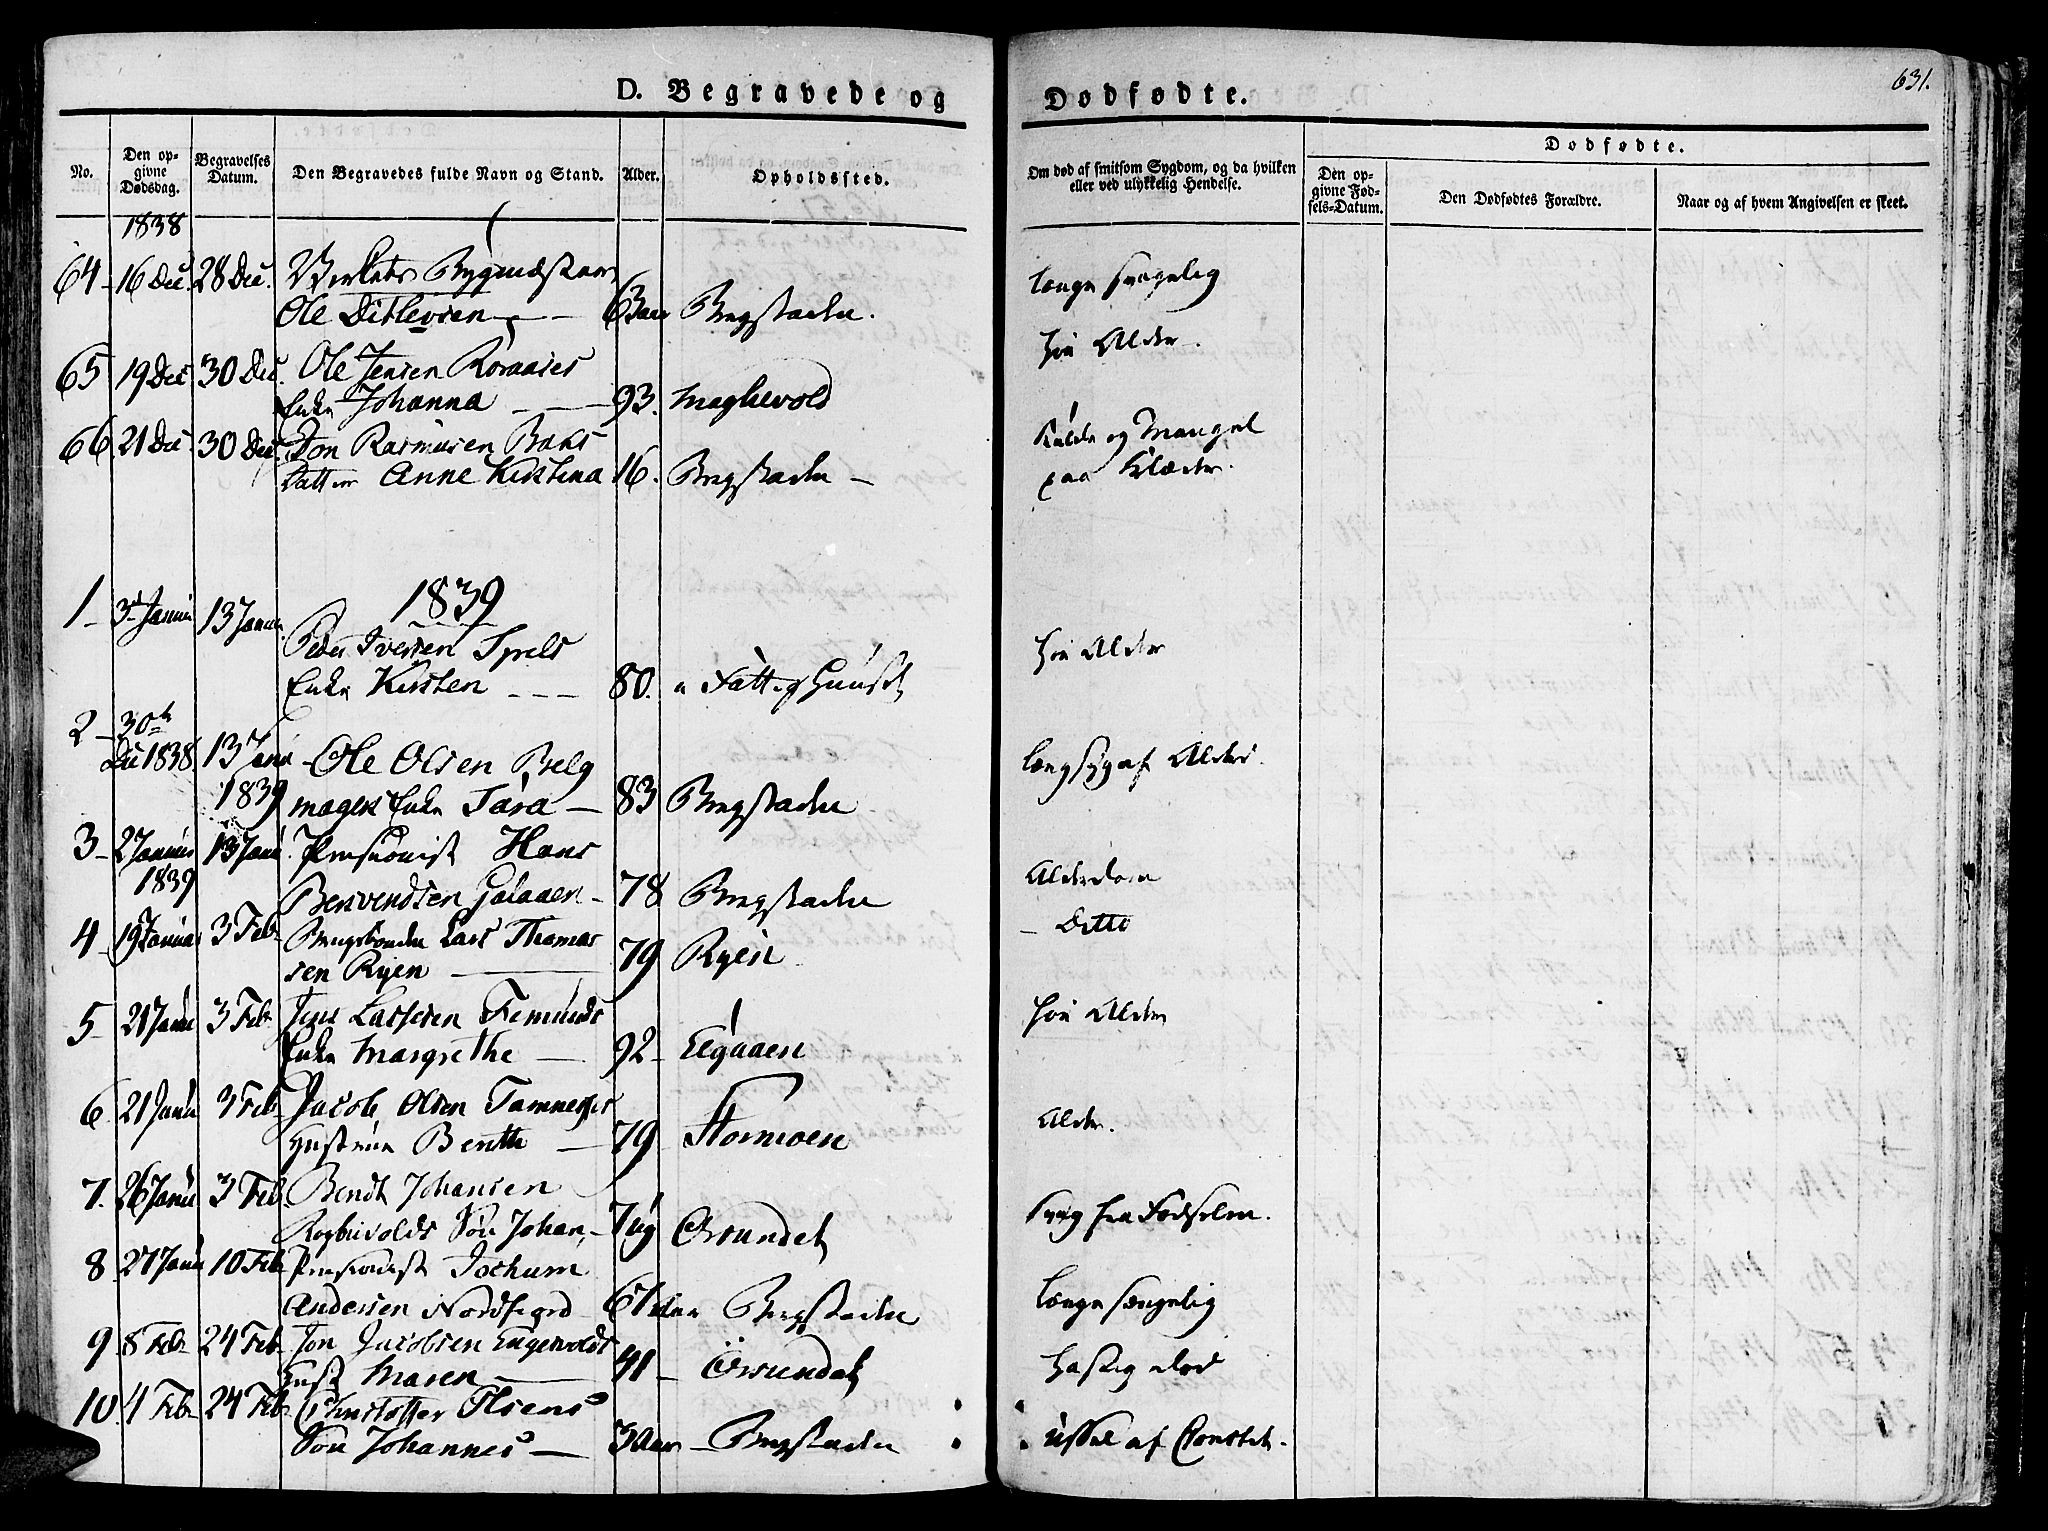 D. Begravede og
Dødfødte.
631.
No.
Den opgivne Dødsdag.
Begravelses Datum.
Den Begravedes fulde Navn og Stand.
Alder.
Opholdssted.
Om død af smitsom Sygdom, og da hvilken eller ved ulykkelig Hendelse.
Dødfødte.
Den opgivne Fødsels-Datum.
Den Dødfødtes Forældre.
Naar og af hvem Angivelsen er skeet.
1838
64 16 Dec. 28 Dec. Bygmester
Ole Ditlevsen 63 aar Bergstaden. længe svagelig
65 19 Dec 30 Dec. Ole Jensen Roraases
Enke Johanna 93. høi Alder.
66. 21 Dec 30 Dec. Jon Rasmusen Baks
Datter Anne Kistina 16. Bergstaden Kulde og Mangel
paa Klæder.
1839
1 3 Januar 13 Januar Peder Iversen Spels
Enke Kirsten 80. Fattighuuset høi Alder
2 30te
Dec 1838. 13 Janu Ole Olsen Belg
1839 magers Enke Tara 83 Bergstaden af Alder.
3 2 Januar 13 Janu. Pensionist Hans
1839 Berentsen Galaaen 78 Bergstaden Alderdom
4 19 Januar 3 Feb. Bergsbonden Lars Thomas
sen Ryen 79 Ryen Ditto
5 21 Janu 3 Feb Jens Lassesen Femunds
Enke Margrethe 92 Elgaaen høi Alder
6 21 Janu 3 Feb Jacob Olsen Tamneses
Hustrue Berithe 79 Stormoen Alder.
7. 26 Janu 3 Feb. Bendt Johansen
Søn Johan 7 Ug Orsundet Svag fra Fødselen.
8 27 Janu 10 Feb Pensionist Jochum
Andersen Nordfiord 67 aar Bergstaden længe svagelig
9 8 Feb 24 Feb Jon Jacobsen Engesvolds
Hust Maren 41 Orsundet hastig død
10. 4 Feb 24 Feb Christoffer Ilsens
Søn Johannes 3 Aar Bergstaden ussel af